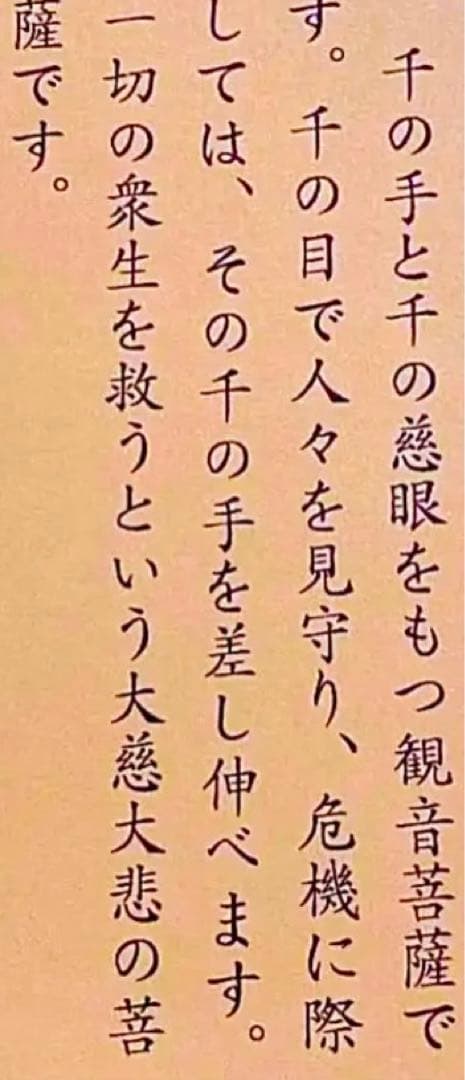 千の手と千の慈眼をもつ観音菩薩で
す。千の目で人々を見守り、危機に際
しては、その千の手を差し伸べます。
一切の衆生を救うという大慈大悲の菩
薩です。